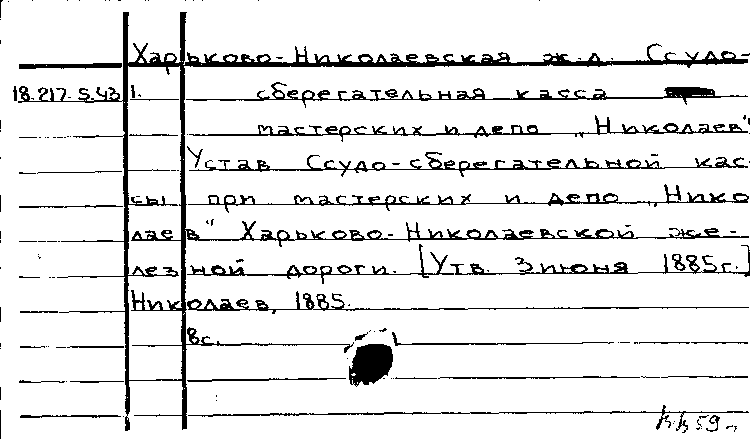 Харьково-Николаевская ж.д. Ссудо-
18.217.5.43 1. сберегательная касса
мастерских и депо „Николаев"
Устав Ссудо-сберегательной кас-
сы при мастерских и депо „Нико
лаев" Харьково-Николаевской же-
лезной дороги. [Утв. 3 июня 1885г.]
Николаев, 1885.
8с.